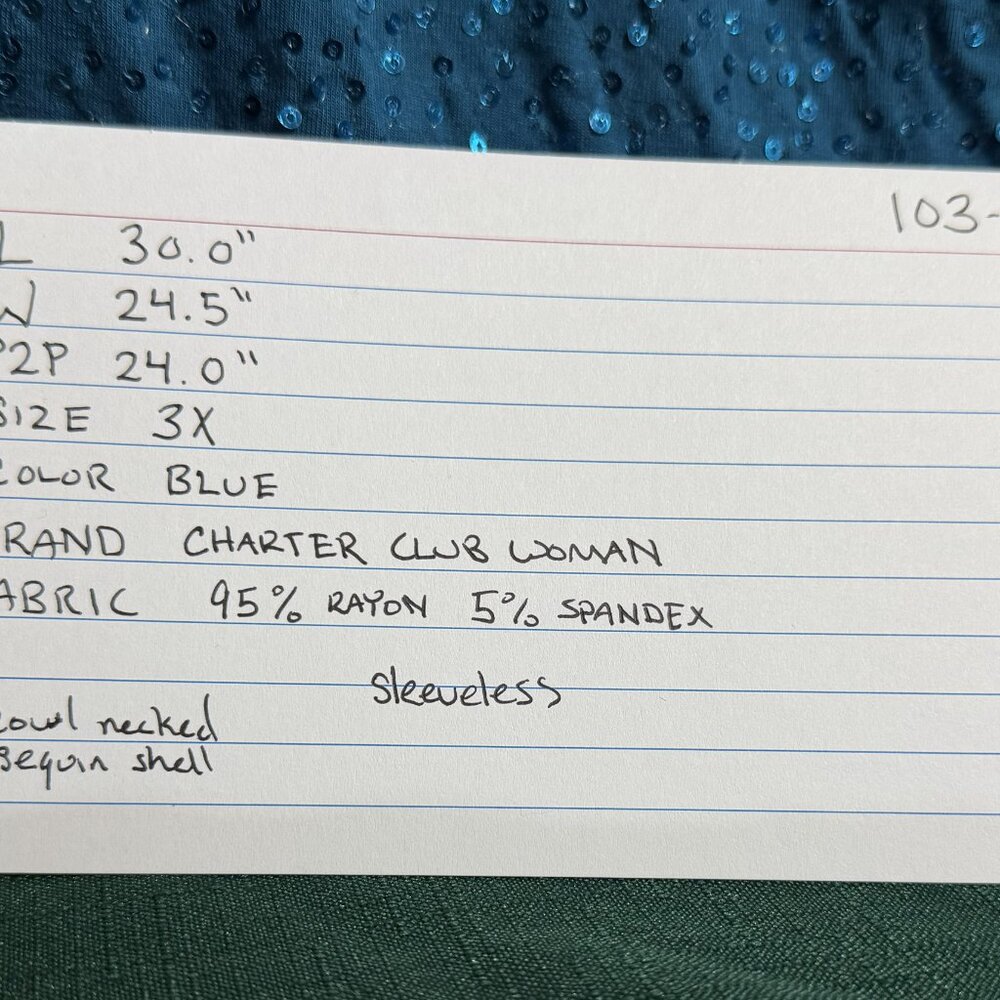 103-
L 30.0"
W 24.5"
P2P 24.0"
SIZE 3X
COLOR BLUE
RAND CHARTER CLUB WOMAN
ABRIC 95% RAYON 5% SPANDEX
sleeveless
cowl necked
sequin shell